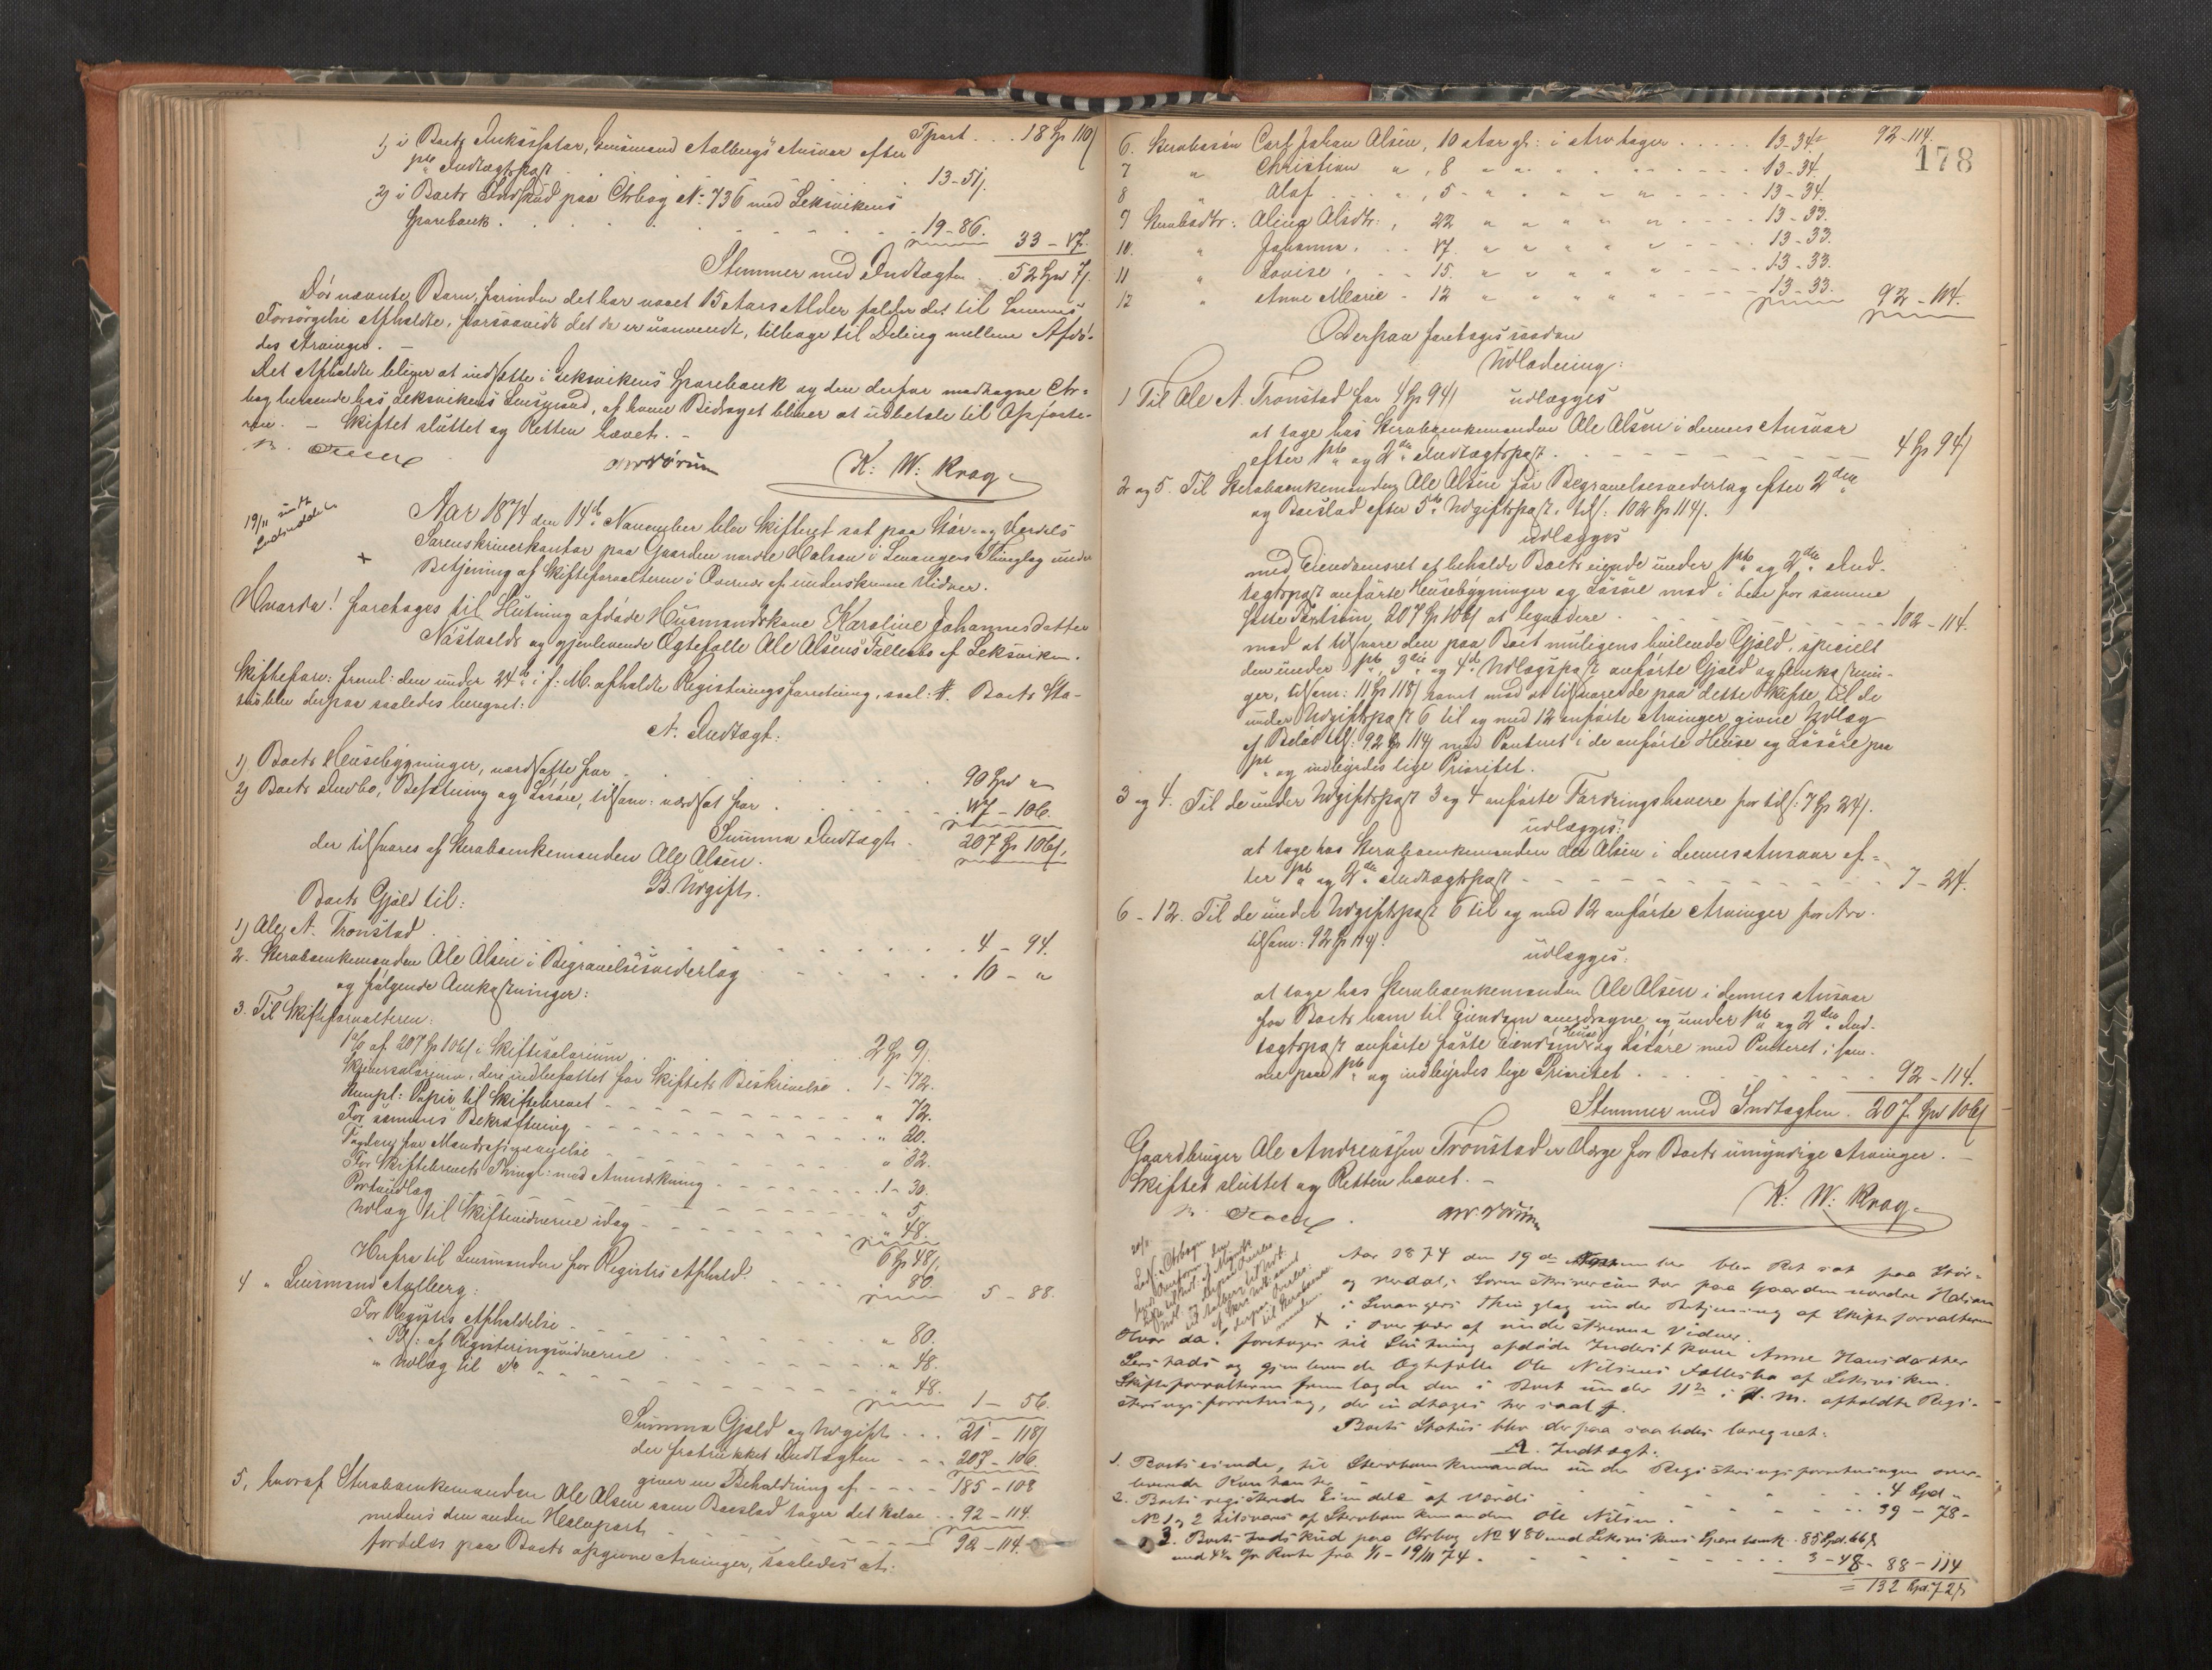 Tpart . . . 18 Sp 110ſ
1) i Boets Inkassator, Lensmand Aalbergs Ansvar efter
1ste Indtægtspost . 13-51ſ.
2) i Boets Indskud paa Ctrbog No: 736 med Leksvikens
Sparebank . . . 19-86. 33-17.
Stemmer med Indtægten . . 52 Spd 7ſ.
Dör nævnte Barn, forinden det har naaet 15 Aars Alder falder det til sammes
Forsørgelse afholdte, forsaavidt det da er uanvendt, tilbage til Deling mellem Afdö-
des Arvinger. —
Det Afholdte bliver at indsætte i Leksvikens Sparebank og den derfor modtagne Ctr-
bog beroende hos Leksvikens Lensmand, af hvem Bidraget bliver at udbetale til Opfostre-
ren. — Skiftet sluttet og Retten hævet. —
K: W: Krog
19/11
Aar 1874 den 14de November blev Skifteret sat paa Stör- og Værdals
Sorenskriverkontor paa Gaarden nordre Halsan i Levangers Thinglag under
Betjening af Skifteforvalteren i Overvær af underskrevne Vidner.
Hvorda! foretoges til Slutning afdöde Husmandskone Karoline Johannesdatter
Næstvolds og gjenlevende Ægtefælle Ole Olsens Fællesbo af Leksviken.
Skifteforv: freml: den under 24de i f: M. afholdte Registeringsforretning, saal: #. Boets Sta-
tus blev derpaa saaledes beregnet:
A. Indtægt:
1) Boets Husebygninger, værdsatte for . . . 90 Spd "
2) Boets Indbo, Besætning og Lösöre, tilsam: værdsat for . . . 117-106.
Summa Indtægt . 207 Sp 106ſ.
der tilsvares af Stervboenkemanden Ole Olsen.
B. Udgift.
Boets Gjæld til:
1) Ole A. Tronstad . . . 4-94.
2. Stervboenkemanden Ole Olsen i Begravelsesvederlag . . . 10-"
og følgende Omkostninger:
3. Til Skifteforvalteren:
1% af 207 Sp 106ſ i Skiftesalarium . . . 2 Sp 9ſ.
Skriversalarium, deri indbefattet for Skiftets Beskrivelse . 1-112.
Stempl: Papir til Skiftebrevet . . . " 72.
For sammes Bekræftning . . . " 20.
" 32.
For Skiftebrevets Thingl: med Anmærkning . . . 1-30.
Portoudlæg . . . " 5.
Udlæg til Skiftevidnerne idag . . . " 48.
6 Sp 48ſ.
Herfra til Lensmanden for Registrs Afhold: . . . 80. 5-88.
4 " Lensmand Aalberg:
For Registrs Afholdelse . . . " 80.
" Tils: af Registeringsvidnerne . . . " 48.
" Udlæg til do . . . " 48.
1-56.
Summa Gjæld og Udgift . . . 21-118ſ
der fratrukket Indtægten . . . 207-106.
giver en Beholdning af . . . 185-108
5, hvoraf Stervboenkemanden Ole Olsen som Boeslod tager det halve . . 92-114.
medens den anden Halvpart . . . 92-114.
fordeles paa Boets opgivne Arvinger, saaledes at:
178
6. Stervbosön Carl Johan Olsen, 10 Aar gl: i Arv tager . . . 13-34 92-114.
7 " Christian " , 8 " " . . . 13-34.
8 " Olaf " , 5 " " . . . 13-34.
9 Stervbodtr: Olina Olsdtr: , 22 " " . . . 13-33.
10. " Johanna , 17. " " . . . 13-33.
11 " Lovise , 15. " " . . . 13-33.
12 " Anne Marie - 12 " " . . . 13-33. 92-114.
Derpaa foretoges saadan
Udlodning:
1 Til Ole A. Tronstad for 4 Sp 94ſ udlægges
at tage hos Stervboenkemanden Ole Olsen i dennes Ansvar
efter 1ste og 2den Indtægtspost . . . 4 Sp 94ſ
2 og 5. Til Stervboenkemanden Ole Olsen for Begravelsesvederlag efter 2den
og Boeslod efter 5te Udgiftspost, tils: 102 Sp 114ſ.
udlægges
med Eiendomsret at beholde Boets eiende under 1ste og 2den Ind-
tægtspost anförte Husebygninger og Lösöre mod i den for samme
satte Taxtsum, 207 Sp 106ſ at liquidere . . . 102-114.
mod at tilsvare den paa Boet muligens hvilende Gjæld, specielt
den under 1ste, 3die og 4de Udlægspost anförte Gjæld og Omkostnin-
ger, tilsam: 11 Sp 118ſ samt mod at tilsvare de paa dette Skifte, til de
under Udgiftspost 6 til og med 12 anförte Arvinger givne Udlæg
af Belöb tils: 92 Sp 114 med Panteret i de anförte Huse og Lösöre paa
1ste og indbyrdes lige Prioritet.
3 og 4. Til de under Udgiftspost 3 og 4 anförte Fordringshavere for tils: 7 Sp 24ſ.
udlægges:
at tage hos Stervboenkemanden Ole Olsen i dennes Ansvar ef-
ter 1ste og 2den Indtægtspost . . . 7-24.
6-12. Til de under Udgiftspost 6 til og med 12 anförte Arvinger for Arv.
tilsam: 92 Sp 114ſ.
udlægges:
at tage hos Stervboenkemanden Ole Olsen i dennes Ansvar
for Boets ham til Eiendom overdragne og under 1ste og 2den Ind-
tægtspost anförte faste Eiendom (Huse) og Lösöre med Panteret i sam-
me paa 1ste og indbyrdes lige Prioritet . . . 92-114.
Stemmer med Indtægten . 207 Spd 106ſ
Gaardbruger Ole Andreassen Tronstad er Værge for Boets umyndige Arvinger. —
Skiftet sluttet og Retten hævet. —
K: W: Krog
Aar 1874 den 19de November blev Ret sat paa Stör-
og Værdal, Sorenskrivercontor paa Gaarden nordre Halsan
i Levangers Thinglag under Betjening af Skifteforvalteren
i Overvær af underskrevne Vidner.
Hvor da! foretoges til Slutning afdöde Inderstkone Anne Hansdatter
Lerstads og gjenlevende Ægtefælle Ole Nilsens Fællesbo af Leksviken.
Skifteforvalteren fremlagde den i Boet under 11te i f. M. afholdte Regi-
steringsforretning, der indtages her saal #.
Boets Status blev derpaa saaledes beregnet:
A. Indtægt.
1. Boets eiende, til Stervboenkemanden under Registeringsforretningen over-
leverede Kontanter . . . 4 Spd "
2. Boets registrerede Eiendele af Værdi . . . 39-78-
No 1 og 2 tilsvares af Stervboenkemanden Ole Nilsen.
3. Boets Indskud paa Ctrbog No 480 med Leksvikens Sparebank . 85 Spd. 66ſ
med 4% Renter fra 1/1 - 19/11 74 . . . 3-48- 88-114
= 132 Spd. 72ſ